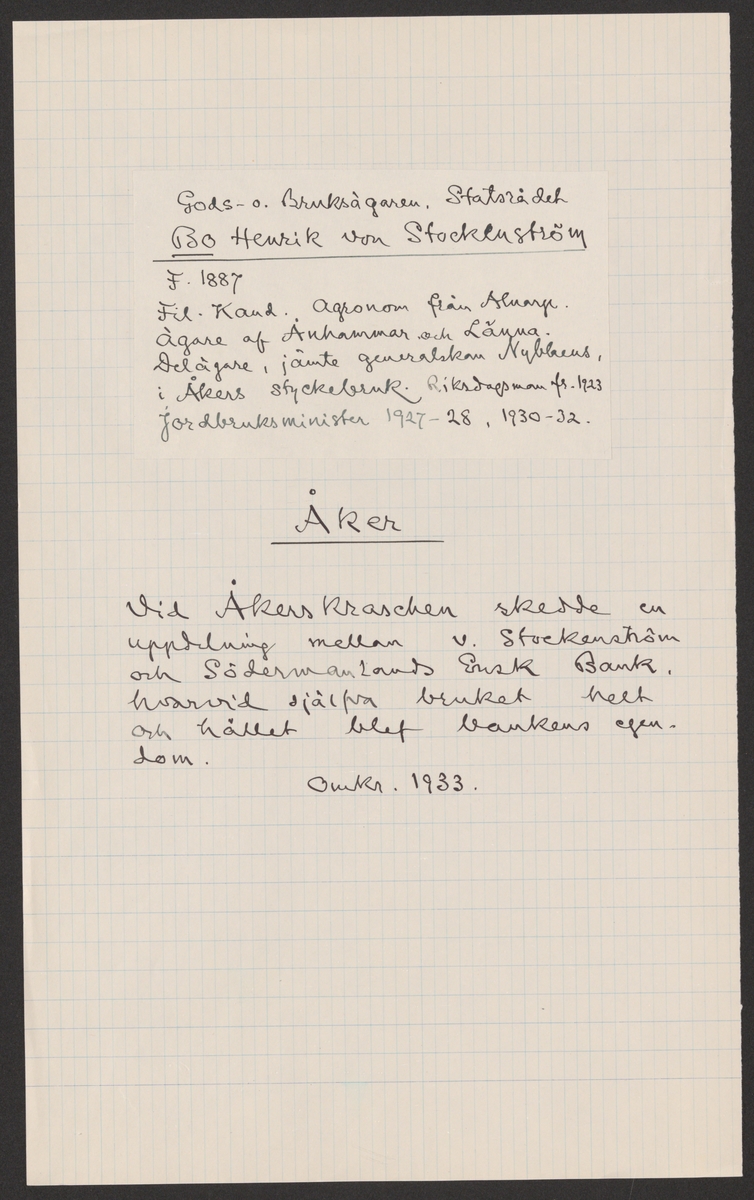 Gods- o. Bruksägaren, Statsrådet
Bo Henrik von Stockenström
F. 1887
Fil. Kand. Agronom från Alnarp.
Ägare af Ånhammar och Länna.
Delägare, jämte generalskan Nybblaeus,
i Åkers styckebruk. Riksdagsman fr. 1923
Jordbruksminister 1927-28, 1930-32.
Åker
Vid Åkerskraschen skedde en
uppdelning mellan v. Stockenström
och Södermanlands Ensk Bank,
hvarvid själfva bruket helt
och hållet blef bankens egen-
dom.
Omkr. 1933.